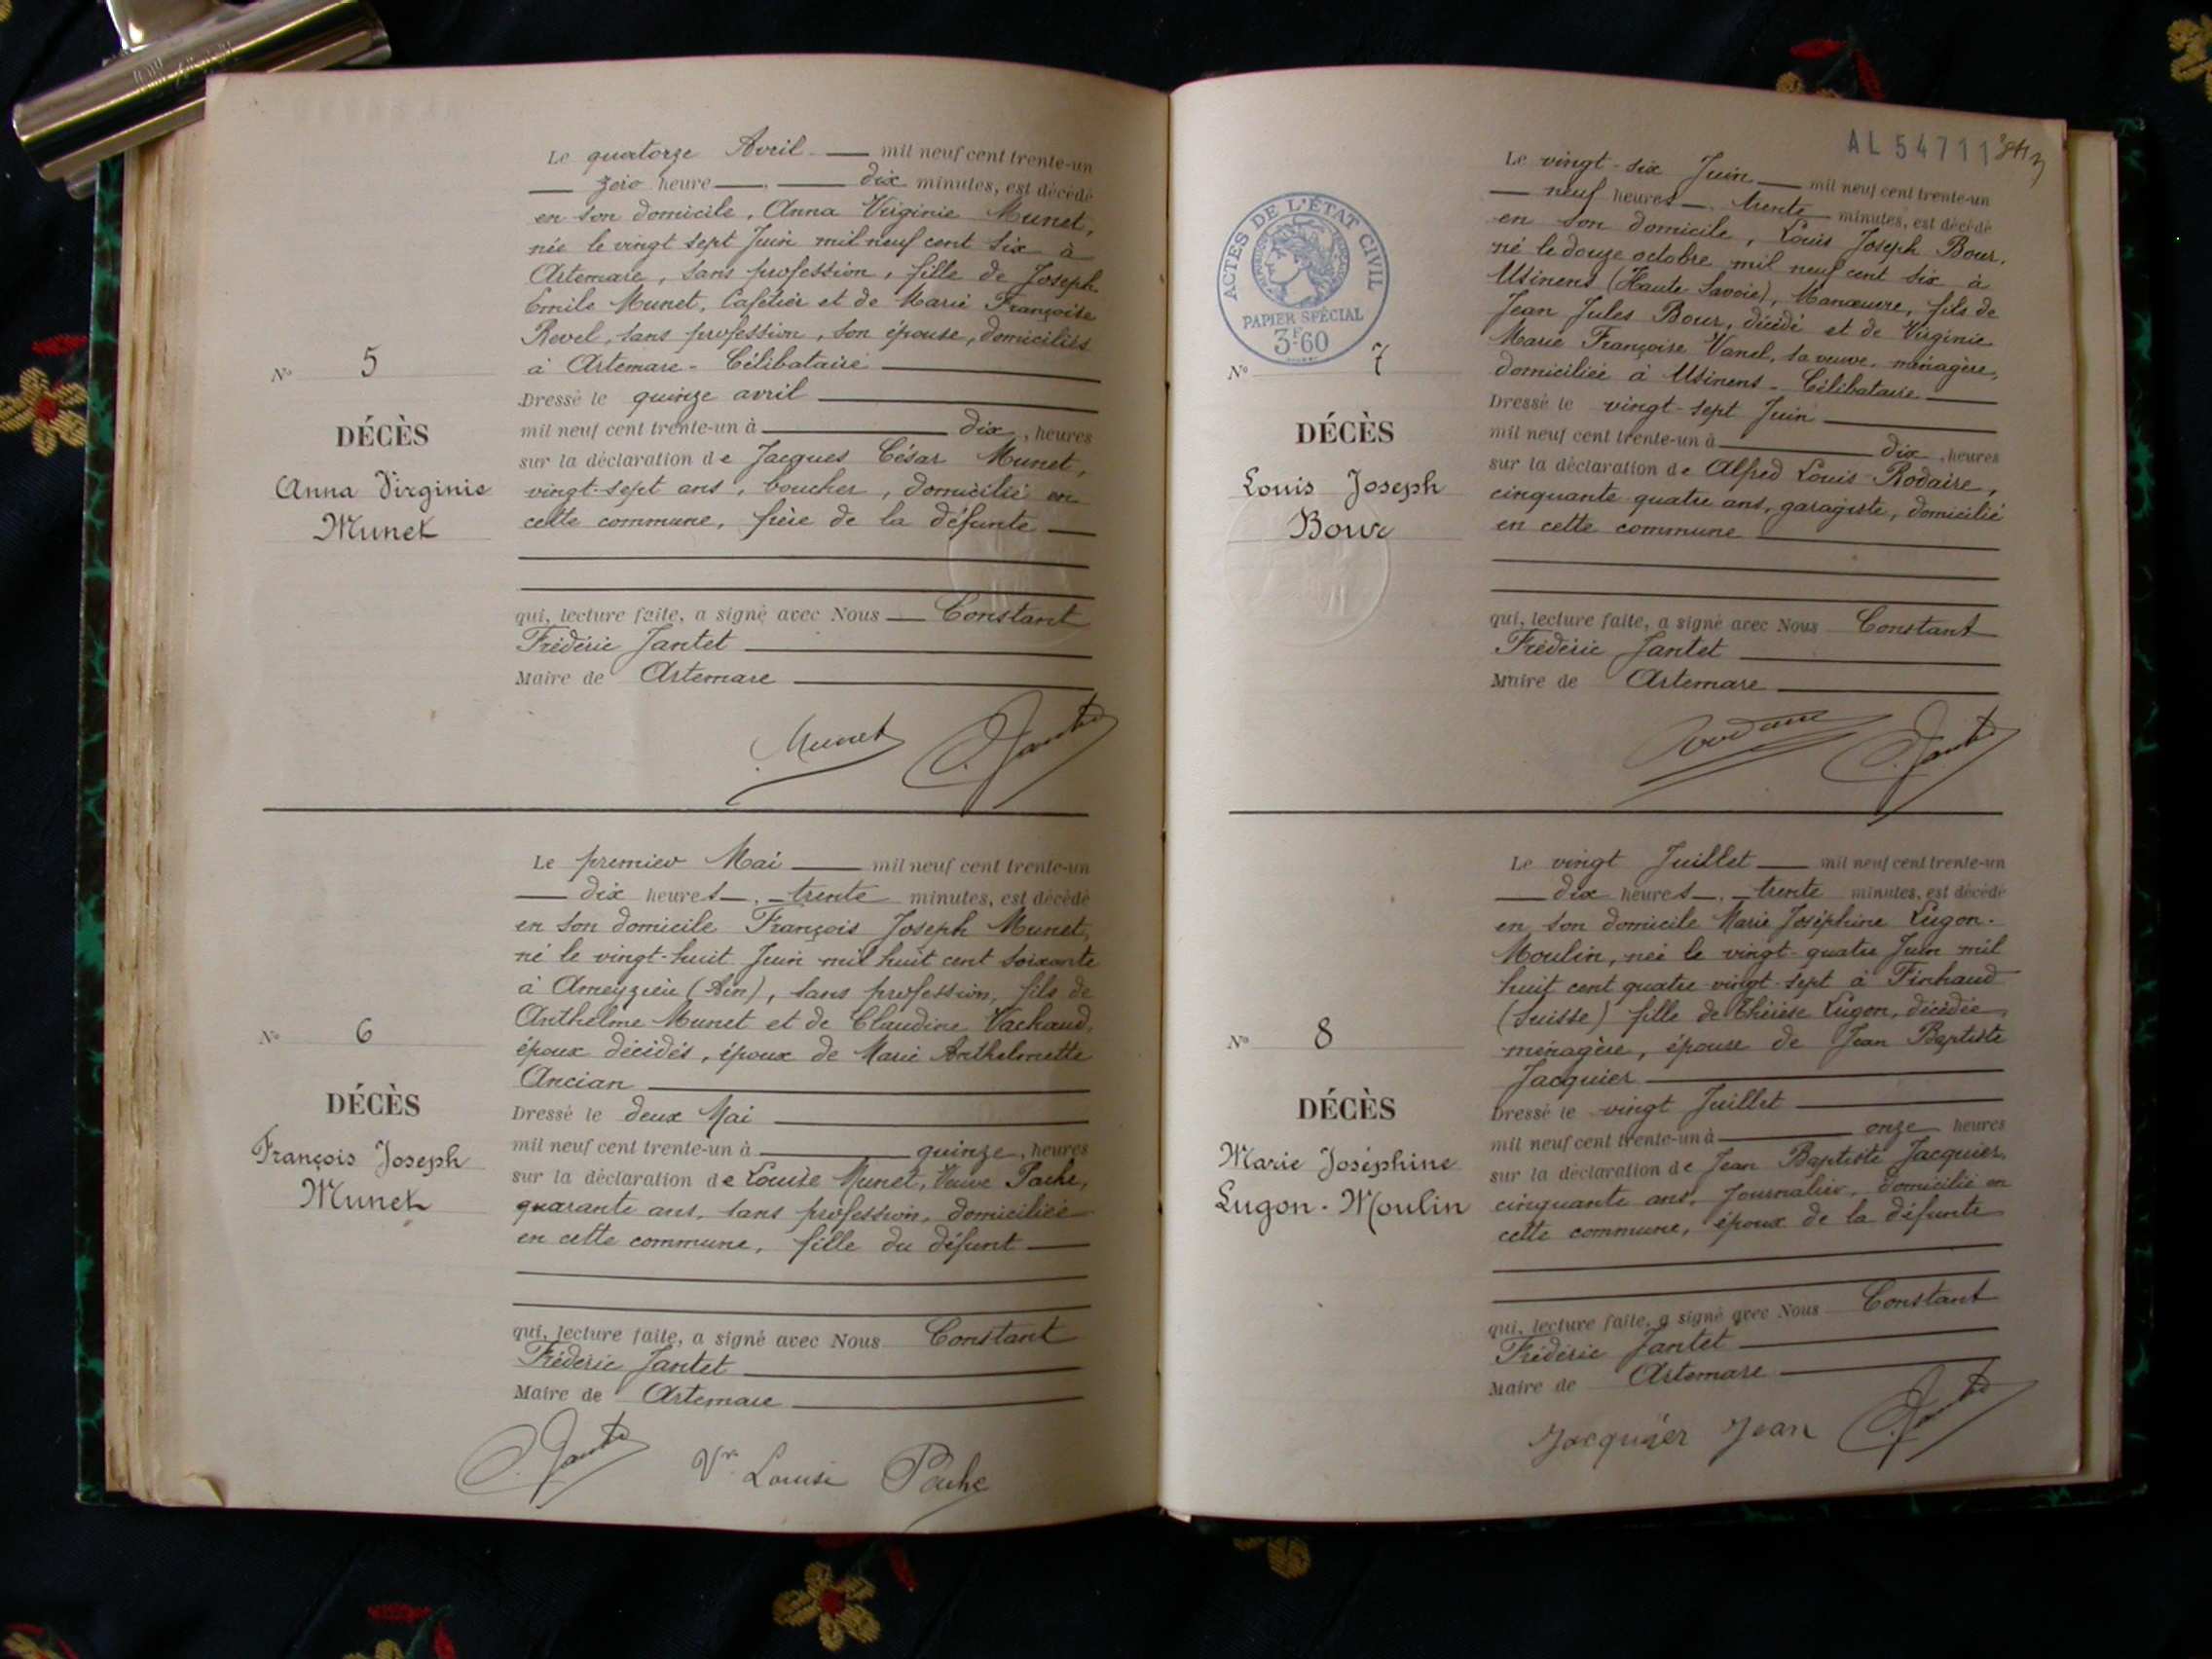 Le quatorze Avril mil neuf cent trente-un
zéro heure, dix minutes, est décédé
en son domicile, Anna Virginie Munet,
née le vingt sept Juin mil neuf cent six à
Artemare, sans profession, fille de Joseph
Emile Munet, Cafetier et de Marie Françoise
Revel, sans profession, son épouse, domiciliés
à Artemare - Célibataire
Dressé le quinze avril
mil neuf cent trente-un à dix, heures
sur la déclaration de Jacques César Munet,
vingt-sept ans, boucher, domicilié en
cette commune, frère de la défunte
qui, lecture faite, a signé avec Nous Constant
Frédéric Jantet
Maire de Artemare
No 5
DÉCÈS
Anna Virginie
Munet
Munet
C. Jantet
Le premier Mai mil neuf cent trente-un
dix heures, trente minutes, est décédé
en son domicile François Joseph Munet,
né le vingt-huit Juin mil huit cent soixante
à Ameyzieu (Ain), sans profession, fils de
Anthelme Munet et de Claudine Vachaud,
époux décédés, époux de Marie Anthelmette
Ancian
Dressé le deux Mai
mil neuf cent trente-un à quinze, heures
sur la déclaration de Louise Munet, Veuve Pache,
quarante ans, sans profession, domiciliée
en cette commune, fille du défunt
qui, lecture faite, a signé avec Nous Constant
Frédéric Jantet
Maire de Artemare
No 6
DÉCÈS
François Joseph
Munet
C. Jantet
Vve Louise Pache
AL 54711
ACTES DE L'ÉTAT CIVIL
PAPIER SPÉCIAL
3F60
Le vingt-six Juin mil neuf cent trente-un
neuf heures, trente minutes, est décédé
en son domicile, Louis Joseph Bour,
né le douze octobre mil neuf cent six à
Usinens (Haute Savoie), Manœuvre, fils de
Jean Jules Bour, décédé et de Virginie
Marie Françoise Vanel, sa veuve, ménagère,
domiciliée à Usinens - Célibataire
Dressé le vingt-sept Juin
mil neuf cent trente-un à dix, heures
sur la déclaration de Alfred Louis Rodaire,
cinquante-quatre ans, garagiste, domicilié
en cette commune
qui, lecture faite, a signé avec Nous Constant
Frédéric Jantet
Maire de Artemare
No 7
DÉCÈS
Louis Joseph
Bour
Rodaire
C. Jantet
Le vingt Juillet mil neuf cent trente-un
dix heures, trente minutes, est décédé
en son domicile Marie Joséphine Lugon-
Moulin, née le vingt-quatre Juin mil
huit cent quatre-vingt-sept à Finhaud
(Suisse) fille de Thérèse Lugon, décédée,
ménagère, épouse de Jean Baptiste
Jacquier
Dressé le vingt Juillet
mil neuf cent trente-un à onze heures
sur la déclaration de Jean Baptiste Jacquier,
cinquante ans, Journalier, domicilié en
cette commune, époux de la défunte
qui, lecture faite, a signé avec Nous Constant
Frédéric Jantet
Maire de Artemare
No 8
DÉCÈS
Marie Joséphine
Lugon-Moulin
Jacquier Jean
C. Jantet